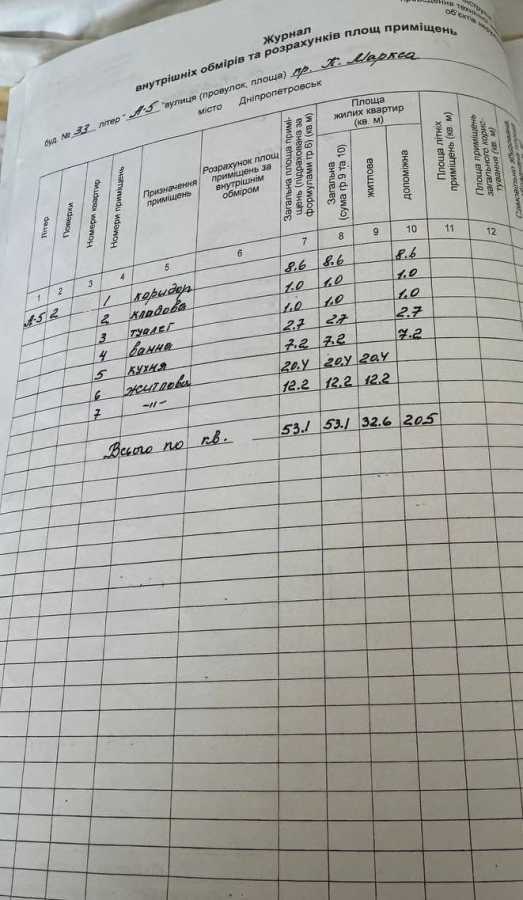 проведення технічної
об'єктів
Журнал
внутрішніх обмірів та розрахунків площ приміщень
буд. № 33 літер " А-5 " вулиця (провулок, площа) пр. К. Маркса
місто Дніпропетровськ
Літер
Поверхи
Номери квартир
Номери приміщень
Призначення приміщень
Розрахунок площ приміщень за внутрішнім обміром
Загальна площа приміщень (підрахована за формулами гр.6) (кв м)
Площа жилих квартир (кв. м)
Загальна (сума гр 9 та 10)
житлова
допоміжна
Площа літніх приміщень (кв. м)
Площа приміщень загального користування (кв. м)
1 2 3 4 5 6 7 8 9 10 11 12
А-5 2 1 коридор 8.6 8.6 8.6
2 кладова 1.0 1.0 1.0
3 туалет 1.0 1.0 1.0
4 ванна 2.7 2.7 2.7
5 кухня 7.2 7.2 7.2
6 житлова 20.4 20.4 20.4
7 -"- 12.2 12.2 12.2
Всього по кв. 53.1 53.1 32.6 20.5